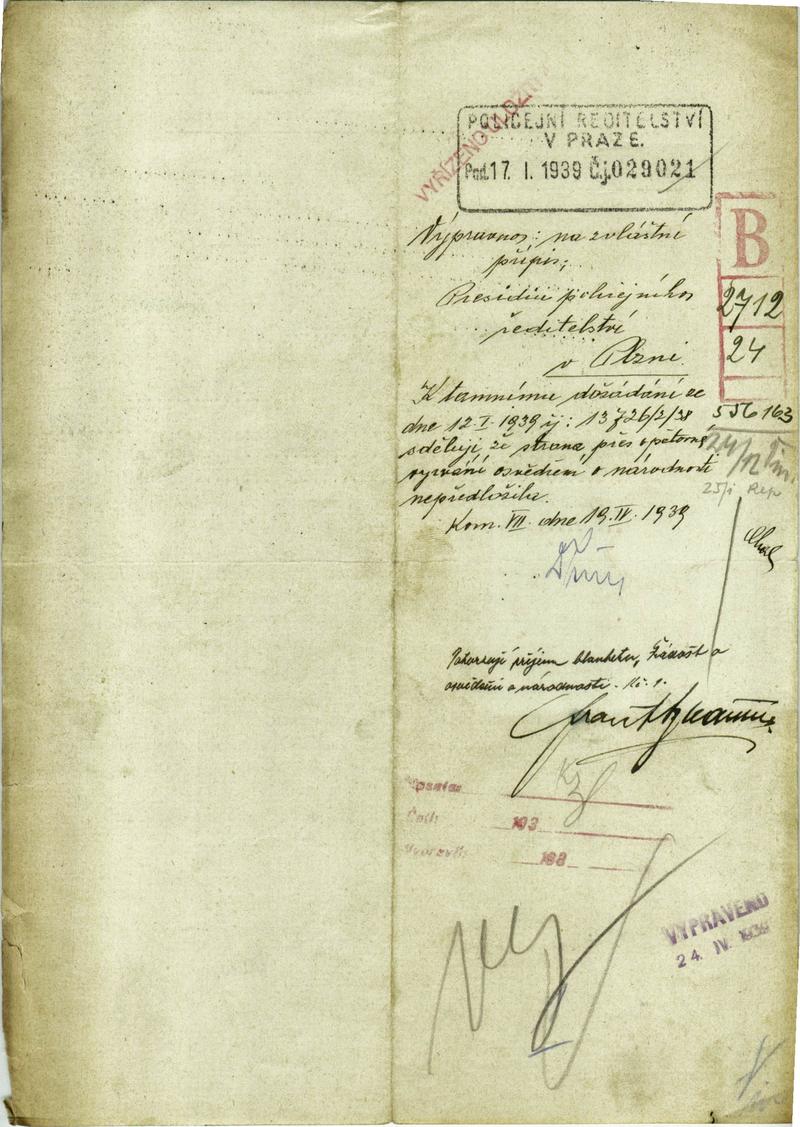 VYŘÍZENO ULOŽIT
POLICEJNÍ ŘEDITELSTVÍ
V PRAZE.
Pod. 17 I. 1939 Čj. 029021
B
2712
24
556 163
Výpravnos: na zvláštní
přípis;
Presidiu policejního
ředitelství
v Plzni.
K tamnímu dožádání ze
dne 12.I.1939 čj: 13726/2/38
sděluji, že strana přes opětovné
vyzvání osvědčení o národnosti
nepředložila.
Kom. VII. dne 19.IV.1939
24/12
25/I Rep
Potvrzuji příjem blanketu, Žádost o
osvědčení o národnosti. Kč. 1.
193
193
VYPRAVENO
24. IV. 1939